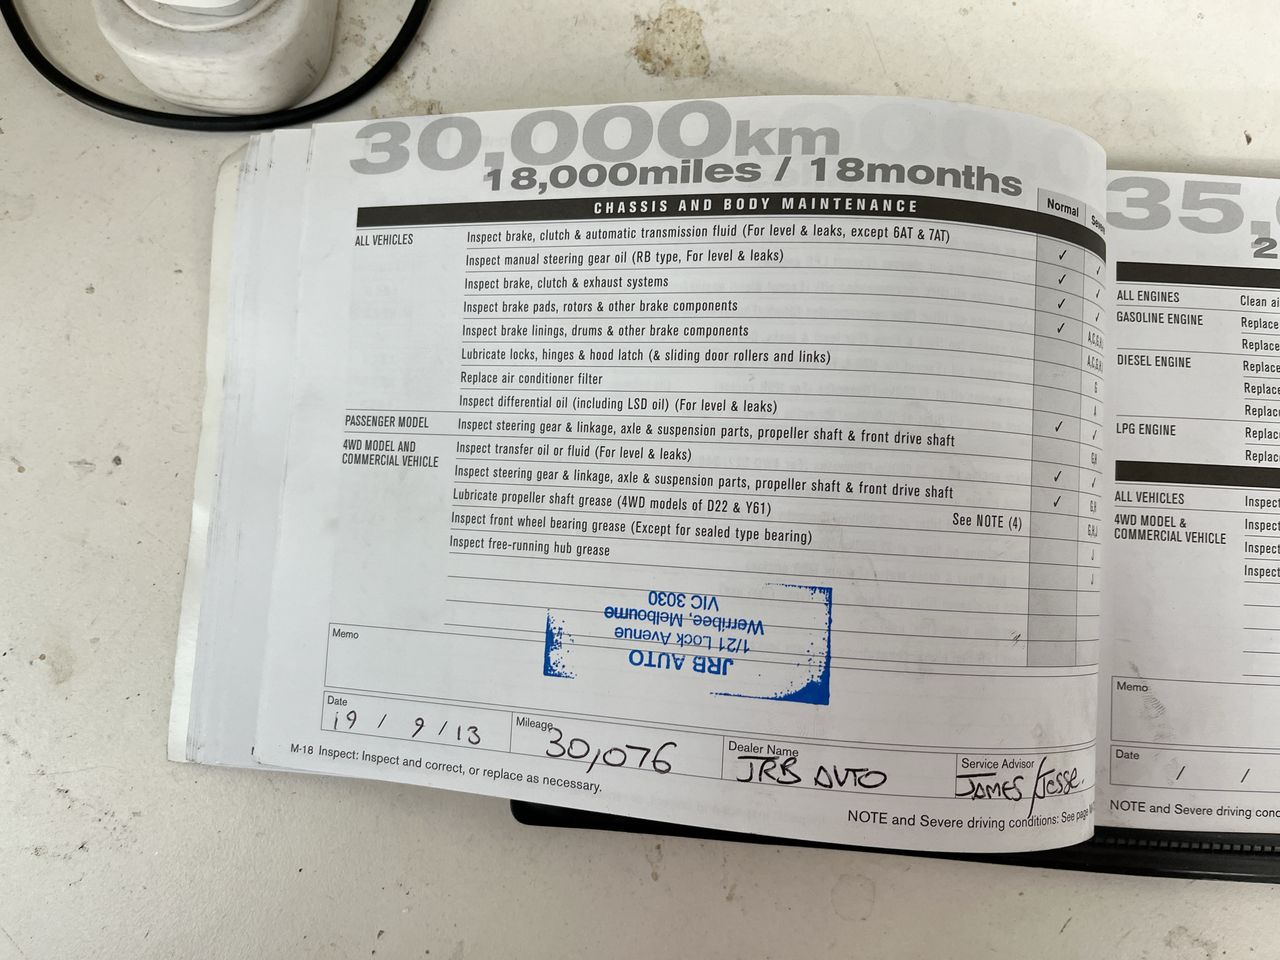 30,000km
18,000miles / 18months
CHASSIS AND BODY MAINTENANCE
Normal
ALL VEHICLES
Inspect brake, clutch & automatic transmission fluid (For level & leaks, except 6AT & 7AT)
✓ ✓
Inspect manual steering gear oil (RB type, For level & leaks)
✓ ✓
Inspect brake, clutch & exhaust systems
✓ ✓
Inspect brake pads, rotors & other brake components
✓
Inspect brake linings, drums & other brake components
Lubricate locks, hinges & hood latch (& sliding door rollers and links)
G
Replace air conditioner filter
A
Inspect differential oil (including LSD oil) (For level & leaks)
✓ ✓
PASSENGER MODEL
Inspect steering gear & linkage, axle & suspension parts, propeller shaft & front drive shaft
G,H
4WD MODEL AND
COMMERCIAL VEHICLE
Inspect transfer oil or fluid (For level & leaks)
✓ ✓
Inspect steering gear & linkage, axle & suspension parts, propeller shaft & front drive shaft
✓ G,H
Lubricate propeller shaft grease (4WD models of D22 & Y61) See NOTE (4)
G,H,J
Inspect front wheel bearing grease (Except for sealed type bearing)
J
Inspect free-running hub grease
J
JRB AUTO
1/21 Lock Avenue
Werribee, Melbourne
VIC 3030
Memo
Date
19 / 9 / 13
Mileage
30,076
Dealer Name
JRB AUTO
Service Advisor
JAMES / Jesse.
M-18 Inspect: Inspect and correct, or replace as necessary.
NOTE and Severe driving conditions: See page
35,
2
ALL ENGINES
Clean
GASOLINE ENGINE
Replace
Replace
DIESEL ENGINE
Replace
Replace
Replace
LPG ENGINE
Replace
Replace
ALL VEHICLES
Inspect
4WD MODEL &
COMMERCIAL VEHICLE
Inspect
Inspect
Inspect
Memo
Date
/ /
NOTE and Severe driving